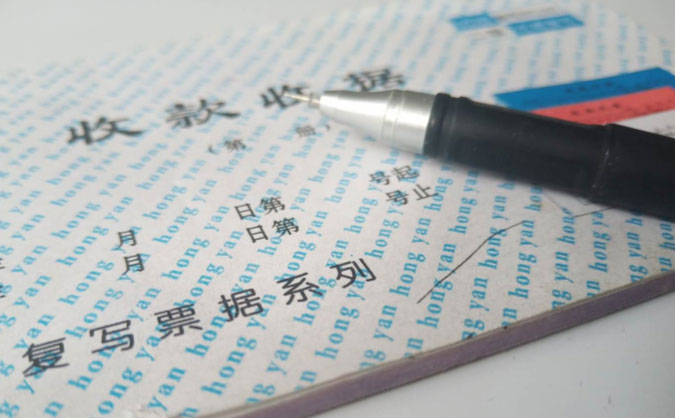 收款收据
(第 册)
月 日第 号起
月 日第 号止
复写票据系列
hong yan hong yan hong yan hong yan